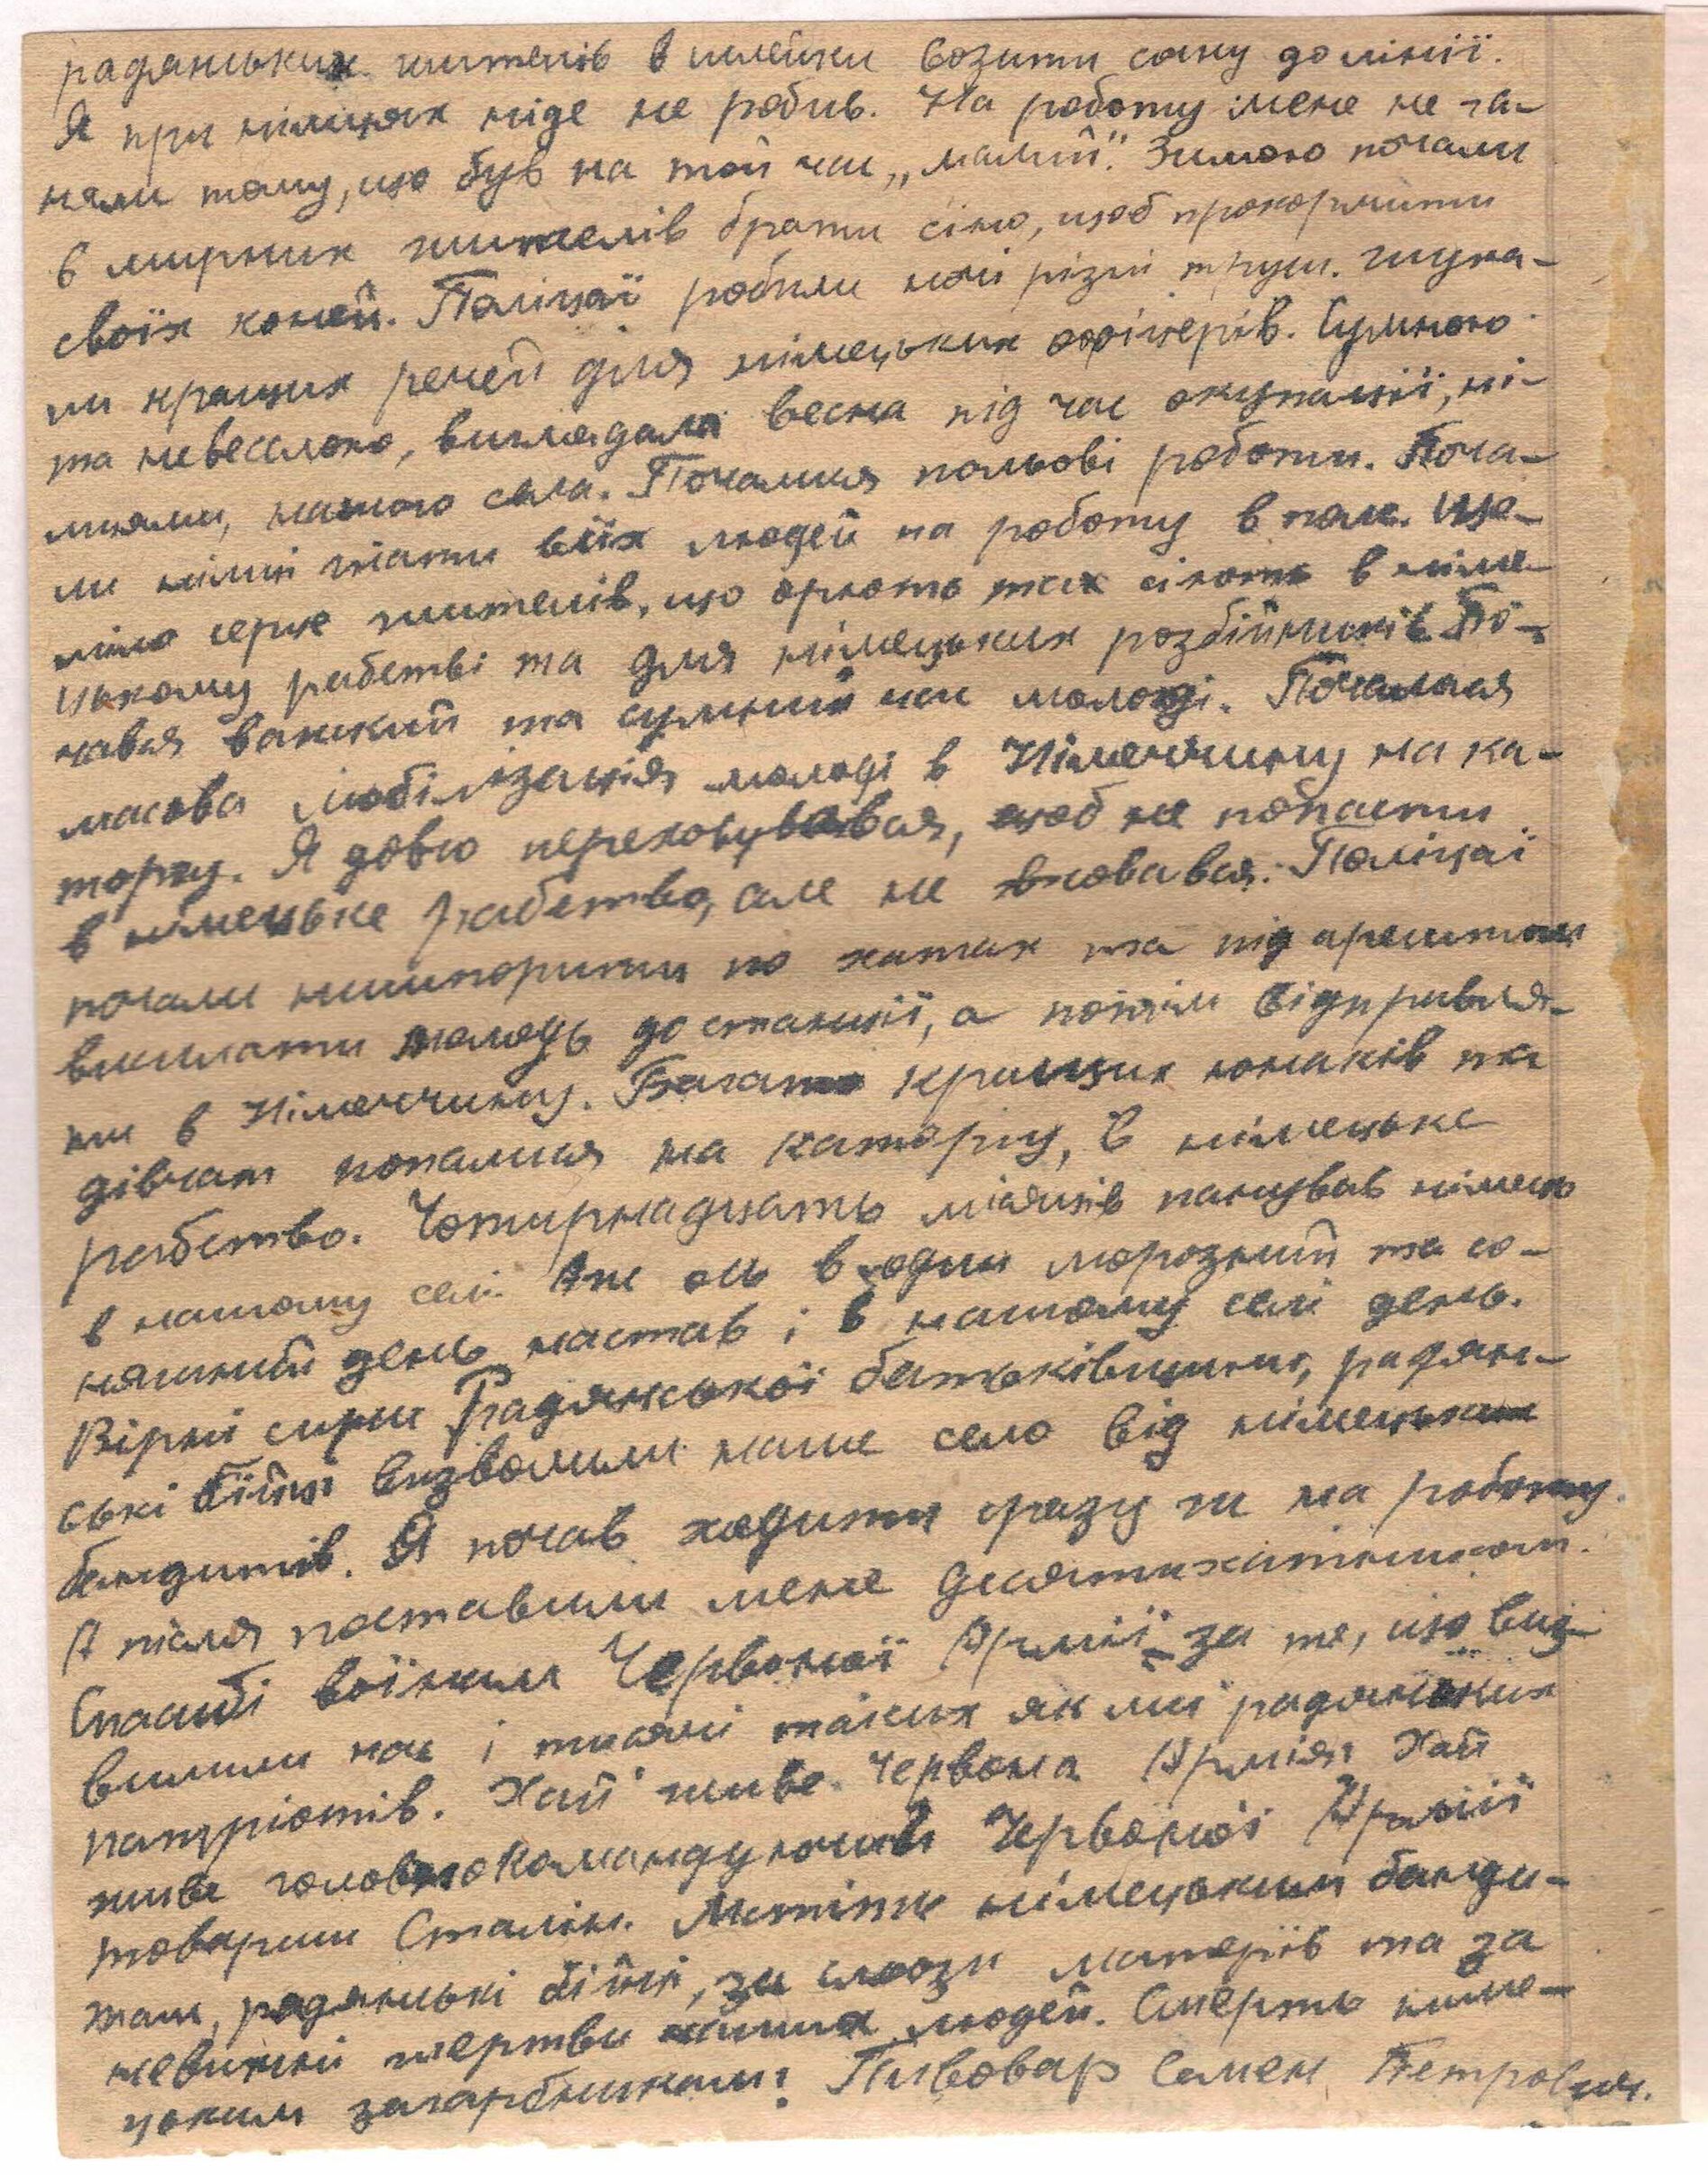 радянських жителів в шлейки возити сану до лінії.
Я при німцях ніде не робив. На роботу мене не га-
няли тому, що був на той час „малий". Зимою почали
в мирних жителів брати сіно, щоб прокормити
своїх коней. Поліцаї робили ночі різні труси. шука-
ли кращих речей для німецьких офіцерів. Сумною
та невеселою, виглядала весна під час окупації, ні-
мцями, нашого села. Почалися польові роботи. Поча-
ли німці гнати всіх людей на роботу в поле. Що-
міло серце жителів, що орють та сіють в німе-
цькому рабстві та для німецьких розбійників. По-
чався важкий та сумний час молоді. Почалася
масова мобілізація молоді в Німеччину на ка-
торгу. Я довго переховувався, щоб не попасти
в німецьке рабство, але не вховався. Поліцаї
почали нишпорити по хатах та під арештом
висилати молодь до станції, а потім відправля-
ти в Німеччину. Багато кращих юнаків та
дівчат попалися на каторгу, в німецьке
рабство. Чотирнадцать місяців панував німець
в нашому селі. Аж ось в один морозний та со-
нячний день настав і в нашому селі день.
Вірні сини Радянської батьківщини, радян-
ські бійці визволили наше село від німецьких
бандитів. Я почав ходити сразу ж на роботу.
А після поставили мене десятихатником.
Спасибі воїнам Червоної Армії за те, що виз-
волили нас і тисячі таких як ми радянських
патріотів. Хай живе Червона Армія! Хай
живе головнокомандуючий Червоної Армії
товариш Сталін. Мстіть німецьким банди-
там, радянські бійці, за сльози матерів та за
невинні жертви наших людей. Смерть німе-
цьким загарбникам! Пивовар Семен Петрович.